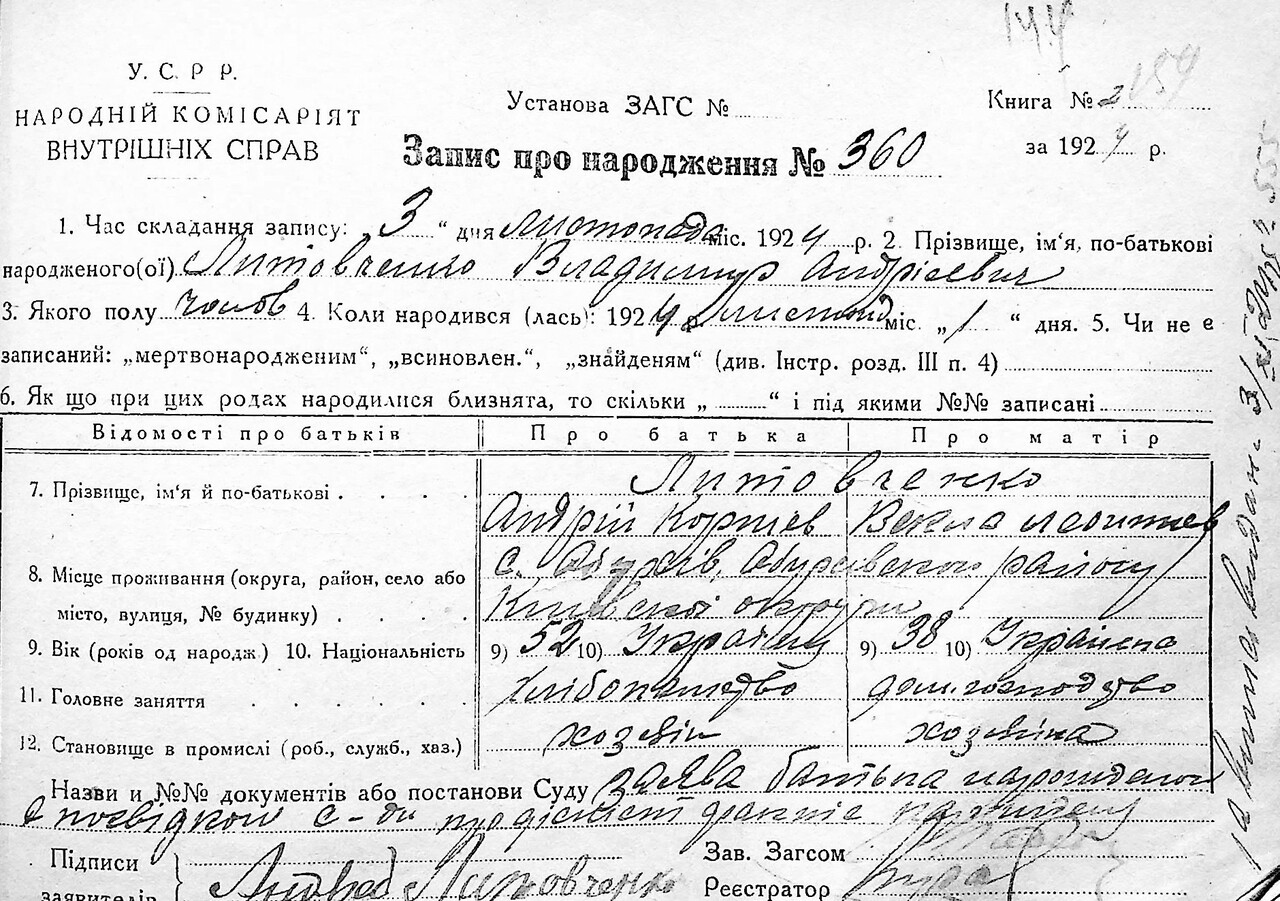 У. С. Р Р.
НАРОДНІЙ КОМІСАРІЯТ
ВНУТРІШНІХ СПРАВ
Установа ЗАГС №
Книга № 2
154
за 1924 р.
Запис про народження № 360
1. Час складання запису: „3“ дня листопада міс. 1924 р. 2. Прізвище, ім‘я, по-батькові
народженого(ої) Литовченко Владимир Андрієвич
3. Якого полу чолов 4. Коли народився (лась): 1924 р. листопад міс. „1“ дня. 5. Чи не є
записаний: „мертвонародженим“, „всиновлен.“, „знайденям“ (див. Інстр. розд. III п. 4)
6. Як що при цих родах народилися близнята, то скільки „ “ і під якими №№ записані
Відомості про батьків Про батька Про матір
7. Прізвище, ім‘я й по-батькові Литовченко
Андрій Корнієв Векла
8. Місце проживання (округа, район, село або
місто, вулиця, № будинку)
с. району
Київської округи
9. Вік (років од народж) 10. Національність 9) 52 10) Українец 9) 38 10) Українка
11. Головне заняття хлібопашество дом. господство
12. Становище в промислі (роб., служб., хаз.) хозяїн хозяїна
Назви и №№ документів або постанови Суду заява батька
Підписи
заявителів
Андрей Литовченко
Зав. Загсом
Реєстратор